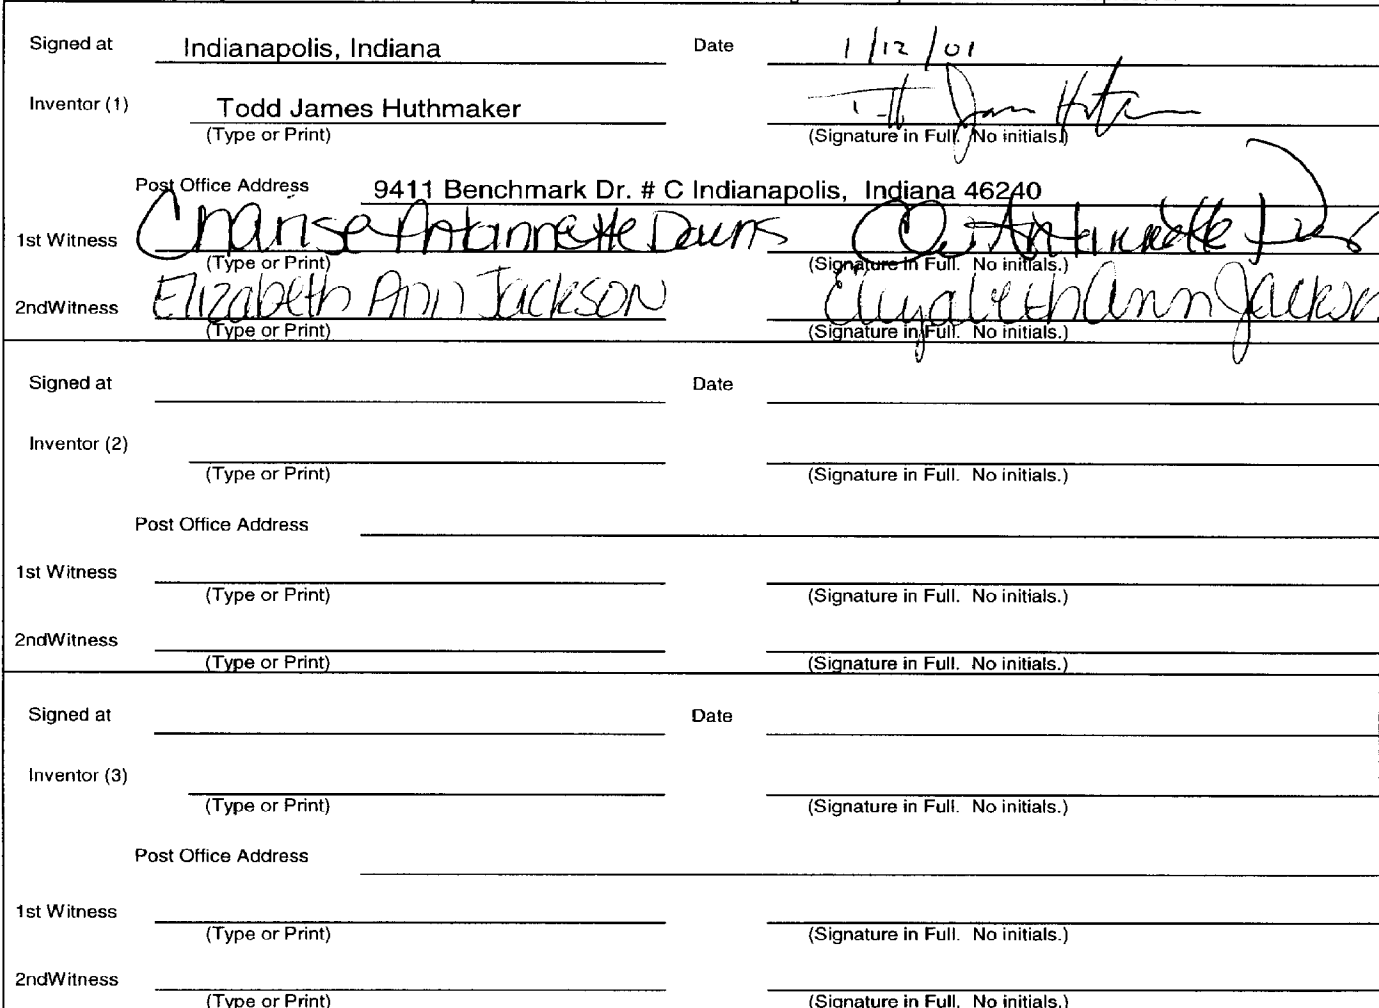 Signed at Indianapolis, Indiana Date 1/12/01
Inventor (1) Todd James Huthmaker
(Type or Print) (Signature in Full. No initials.)
Post Office Address 9411 Benchmark Dr. # C Indianapolis, Indiana 46240
1st Witness Charise Antonnette Downs Antonnette
(Type or Print) (Signature in Full. No initials.)
2ndWitness Elizabeth Ann Jackson Elizabeth Ann Jackson
(Type or Print) (Signature in Full. No initials.)
Signed at Date
Inventor (2)
(Type or Print) (Signature in Full. No initials.)
Post Office Address
1st Witness
(Type or Print) (Signature in Full. No initials.)
2ndWitness
(Type or Print) (Signature in Full. No initials.)
Signed at Date
Inventor (3)
(Type or Print) (Signature in Full. No initials.)
Post Office Address
1st Witness
(Type or Print) (Signature in Full. No initials.)
2ndWitness
(Type or Print) (Signature in Full. No initials.)